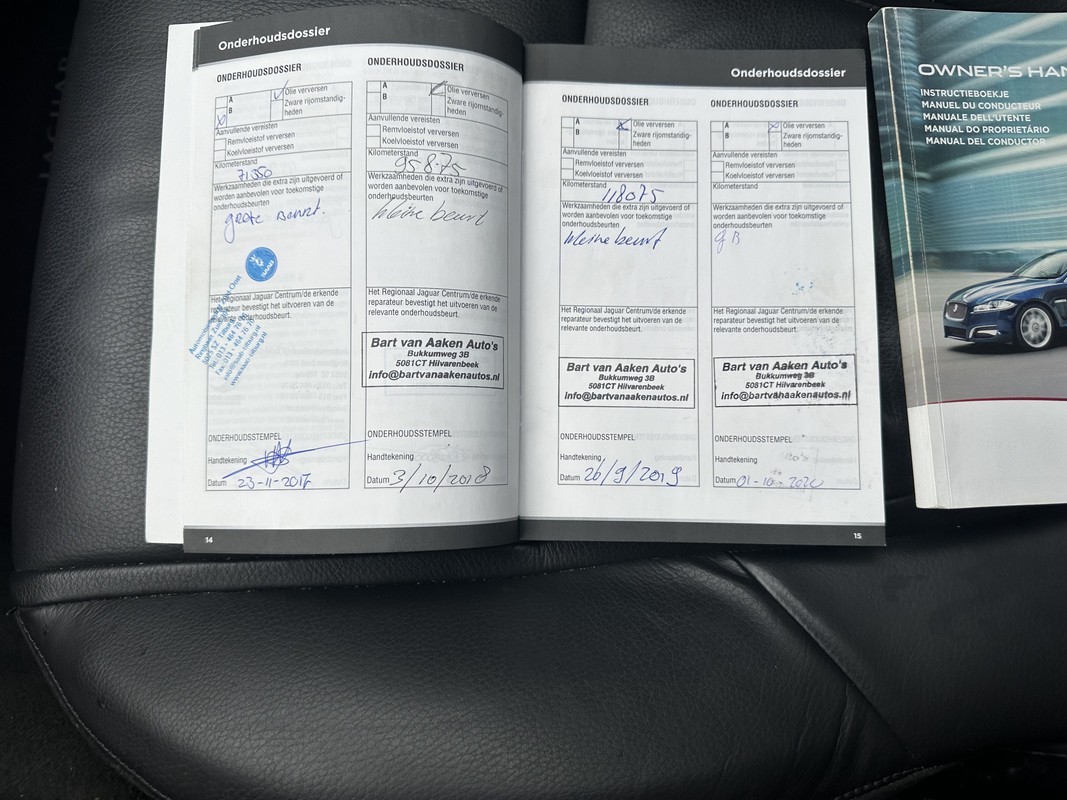 Onderhoudsdossier
ONDERHOUDSDOSSIER
A
B
Olie verversen
Zware rijomstandig-
heden
Aanvullende vereisten
Remvloeistof verversen
Koelvloeistof verversen
Kilometerstand
71550
Werkzaamheden die extra zijn uitgevoerd of
worden aanbevolen voor toekomstige
onderhoudsbeurten
grote Beurt.
SAAB
Het Regionaal Jaguar Centrum/de erkende
reparateur bevestigt het uitvoeren van de
relevante onderhoudsbeurt.
ONDERHOUDSSTEMPEL
Handtekening
Datum 23-11-2017
ONDERHOUDSDOSSIER
A
B
Olie verversen
Zware rijomstandig-
heden
Aanvullende vereisten
Remvloeistof verversen
Koelvloeistof verversen
Kilometerstand
95875
Werkzaamheden die extra zijn uitgevoerd of
worden aanbevolen voor toekomstige
onderhoudsbeurten
kleine beurt
Het Regionaal Jaguar Centrum/de erkende
reparateur bevestigt het uitvoeren van de
relevante onderhoudsbeurt.
Bart van Aaken Auto's
Bukkumweg 3B
5081CT Hilvarenbeek
info@bartvanaakenautos.nl
ONDERHOUDSSTEMPEL
Handtekening
Datum 3/10/2018
14
Onderhoudsdossier
ONDERHOUDSDOSSIER
A
B
Olie verversen
Zware rijomstandig-
heden
Aanvullende vereisten
Remvloeistof verversen
Koelvloeistof verversen
Kilometerstand
118075
Werkzaamheden die extra zijn uitgevoerd of
worden aanbevolen voor toekomstige
onderhoudsbeurten
kleine beurt
Het Regionaal Jaguar Centrum/de erkende
reparateur bevestigt het uitvoeren van de
relevante onderhoudsbeurt.
Bart van Aaken Auto's
Bukkumweg 3B
5081CT Hilvarenbeek
info@bartvanaakenautos.nl
ONDERHOUDSSTEMPEL
Handtekening
Datum 26/9/2019
ONDERHOUDSDOSSIER
A
B
Olie verversen
Zware rijomstandig-
heden
Aanvullende vereisten
Remvloeistof verversen
Koelvloeistof verversen
Kilometerstand
Werkzaamheden die extra zijn uitgevoerd of
worden aanbevolen voor toekomstige
onderhoudsbeurten
g B
Het Regionaal Jaguar Centrum/de erkende
reparateur bevestigt het uitvoeren van de
relevante onderhoudsbeurt.
Bart van Aaken Auto's
Bukkumweg 3B
5081CT Hilvarenbeek
info@bartvanaakenautos.nl
ONDERHOUDSSTEMPEL
Handtekening
Datum 01-10-2020
15
OWNER'S HAN
INSTRUCTIEBOEKJE
MANUEL DU CONDUCTEUR
MANUALE DELL'UTENTE
MANUAL DO PROPRIETÁRIO
MANUAL DEL CONDUCTOR